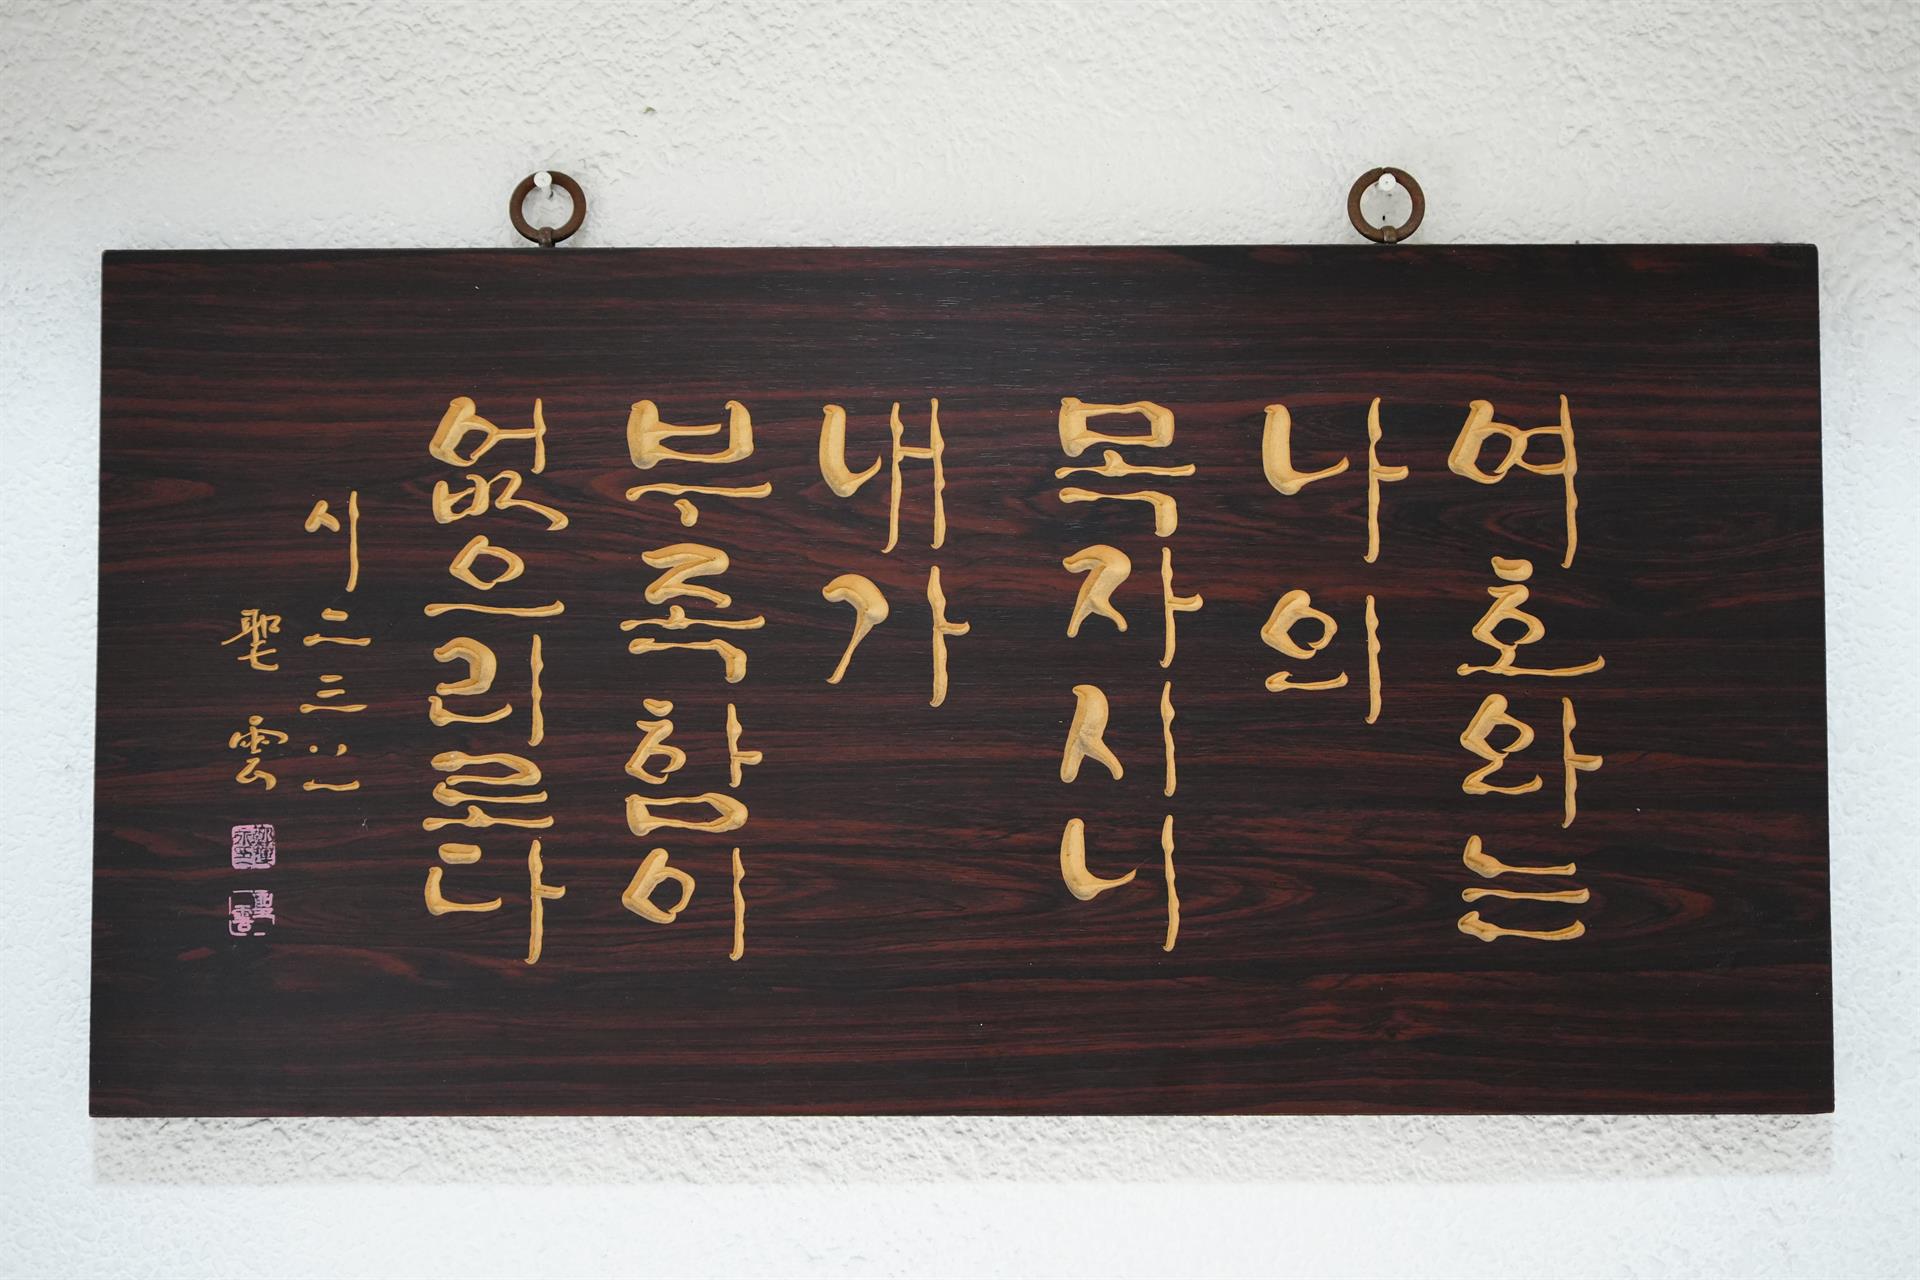 여호와는
나의
목자시니
내가
부족함이
없으리로다
시 二三:一
聖雲
聖雲